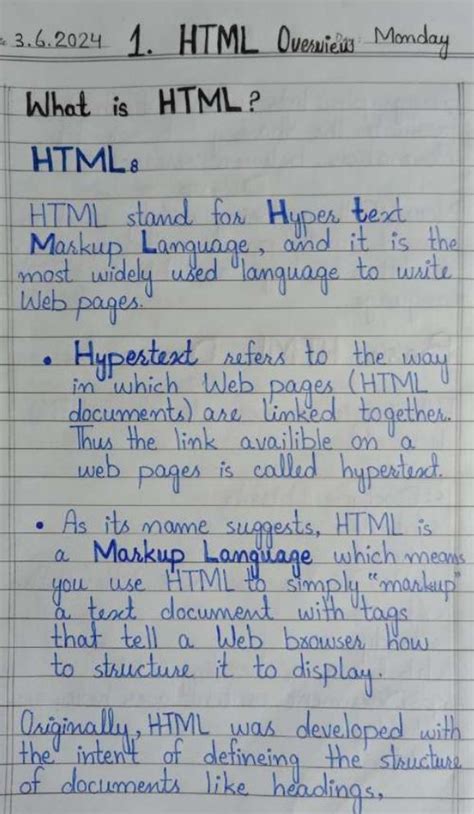 3.6.2024 1. HTML Overview Day: Monday
What is HTML?
HTML:
HTML stand for Hyper text
Markup Language, and it is the
most widely used language to write
Web pages.
• Hypertext refers to the way
in which Web pages (HTML
documents) are linked together.
Thus the link availible on a
web pages is called hypertext.
• As its name suggests, HTML is
a Markup Language which means
you use HTML to simply "markup"
a text document with tags
that tell a Web browser how
to structure it to display.
Originally, HTML was developed with
the intent of defineing the structure
of documents like headings,